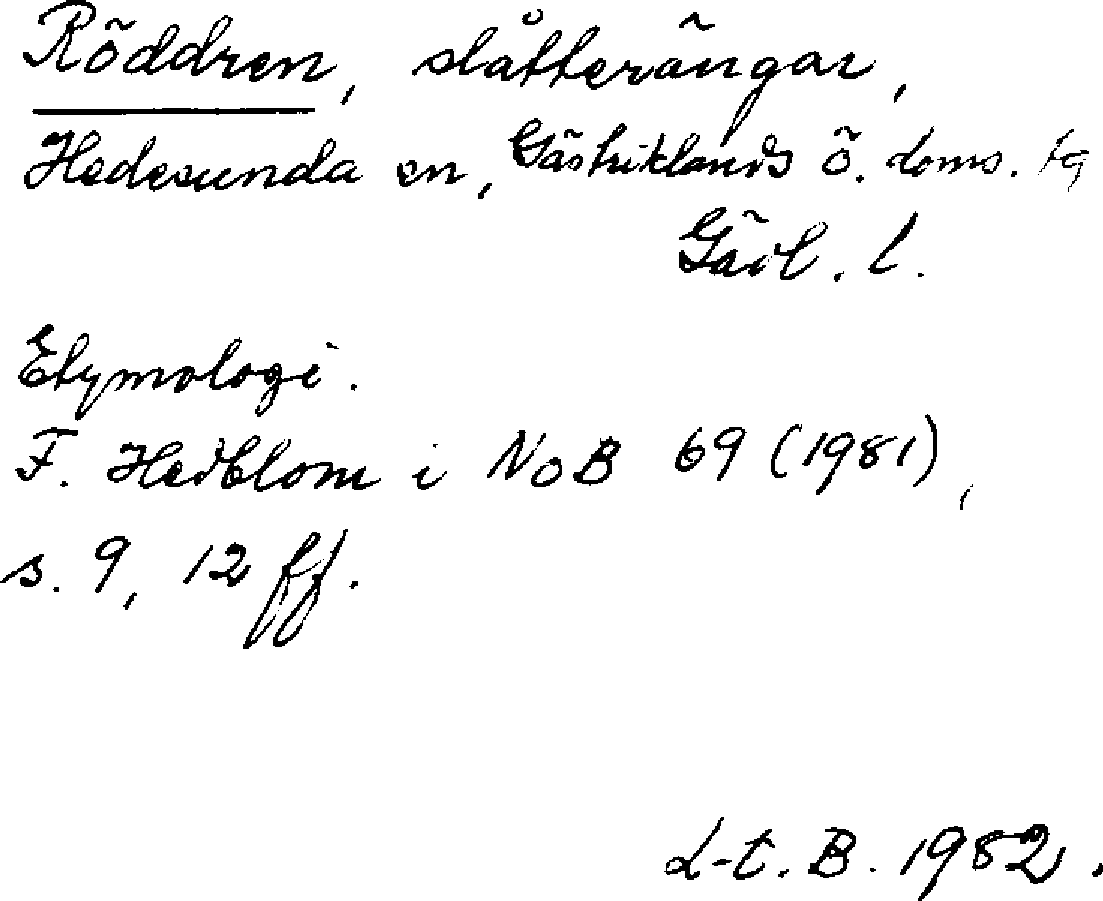 Röddren, slåtterängar,
Hedesunda sn, Gästriklands ö. doms. tg
Gävl. l.
Etymologi.
F. Hedblom i NoB 69 (1981),
s. 9, 12 ff.
L-t. B. 1982.